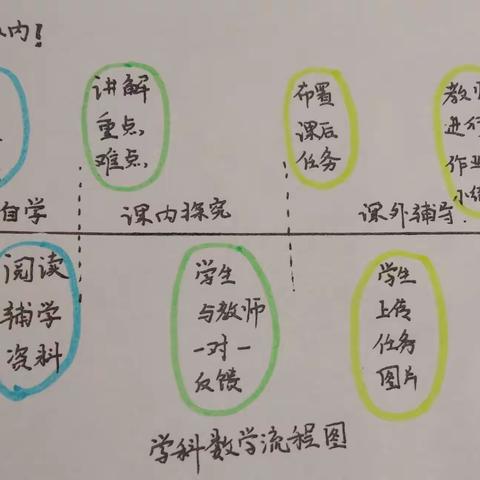 内!
讲解
重点,
难点,
布置
课后
任务
教师
进行
作业
小结
自学
课内探究
课外辅导
阅读
辅学
资料
学生
与教师
一对一
反馈
学生
上传
任务
图片
学科数学流程图